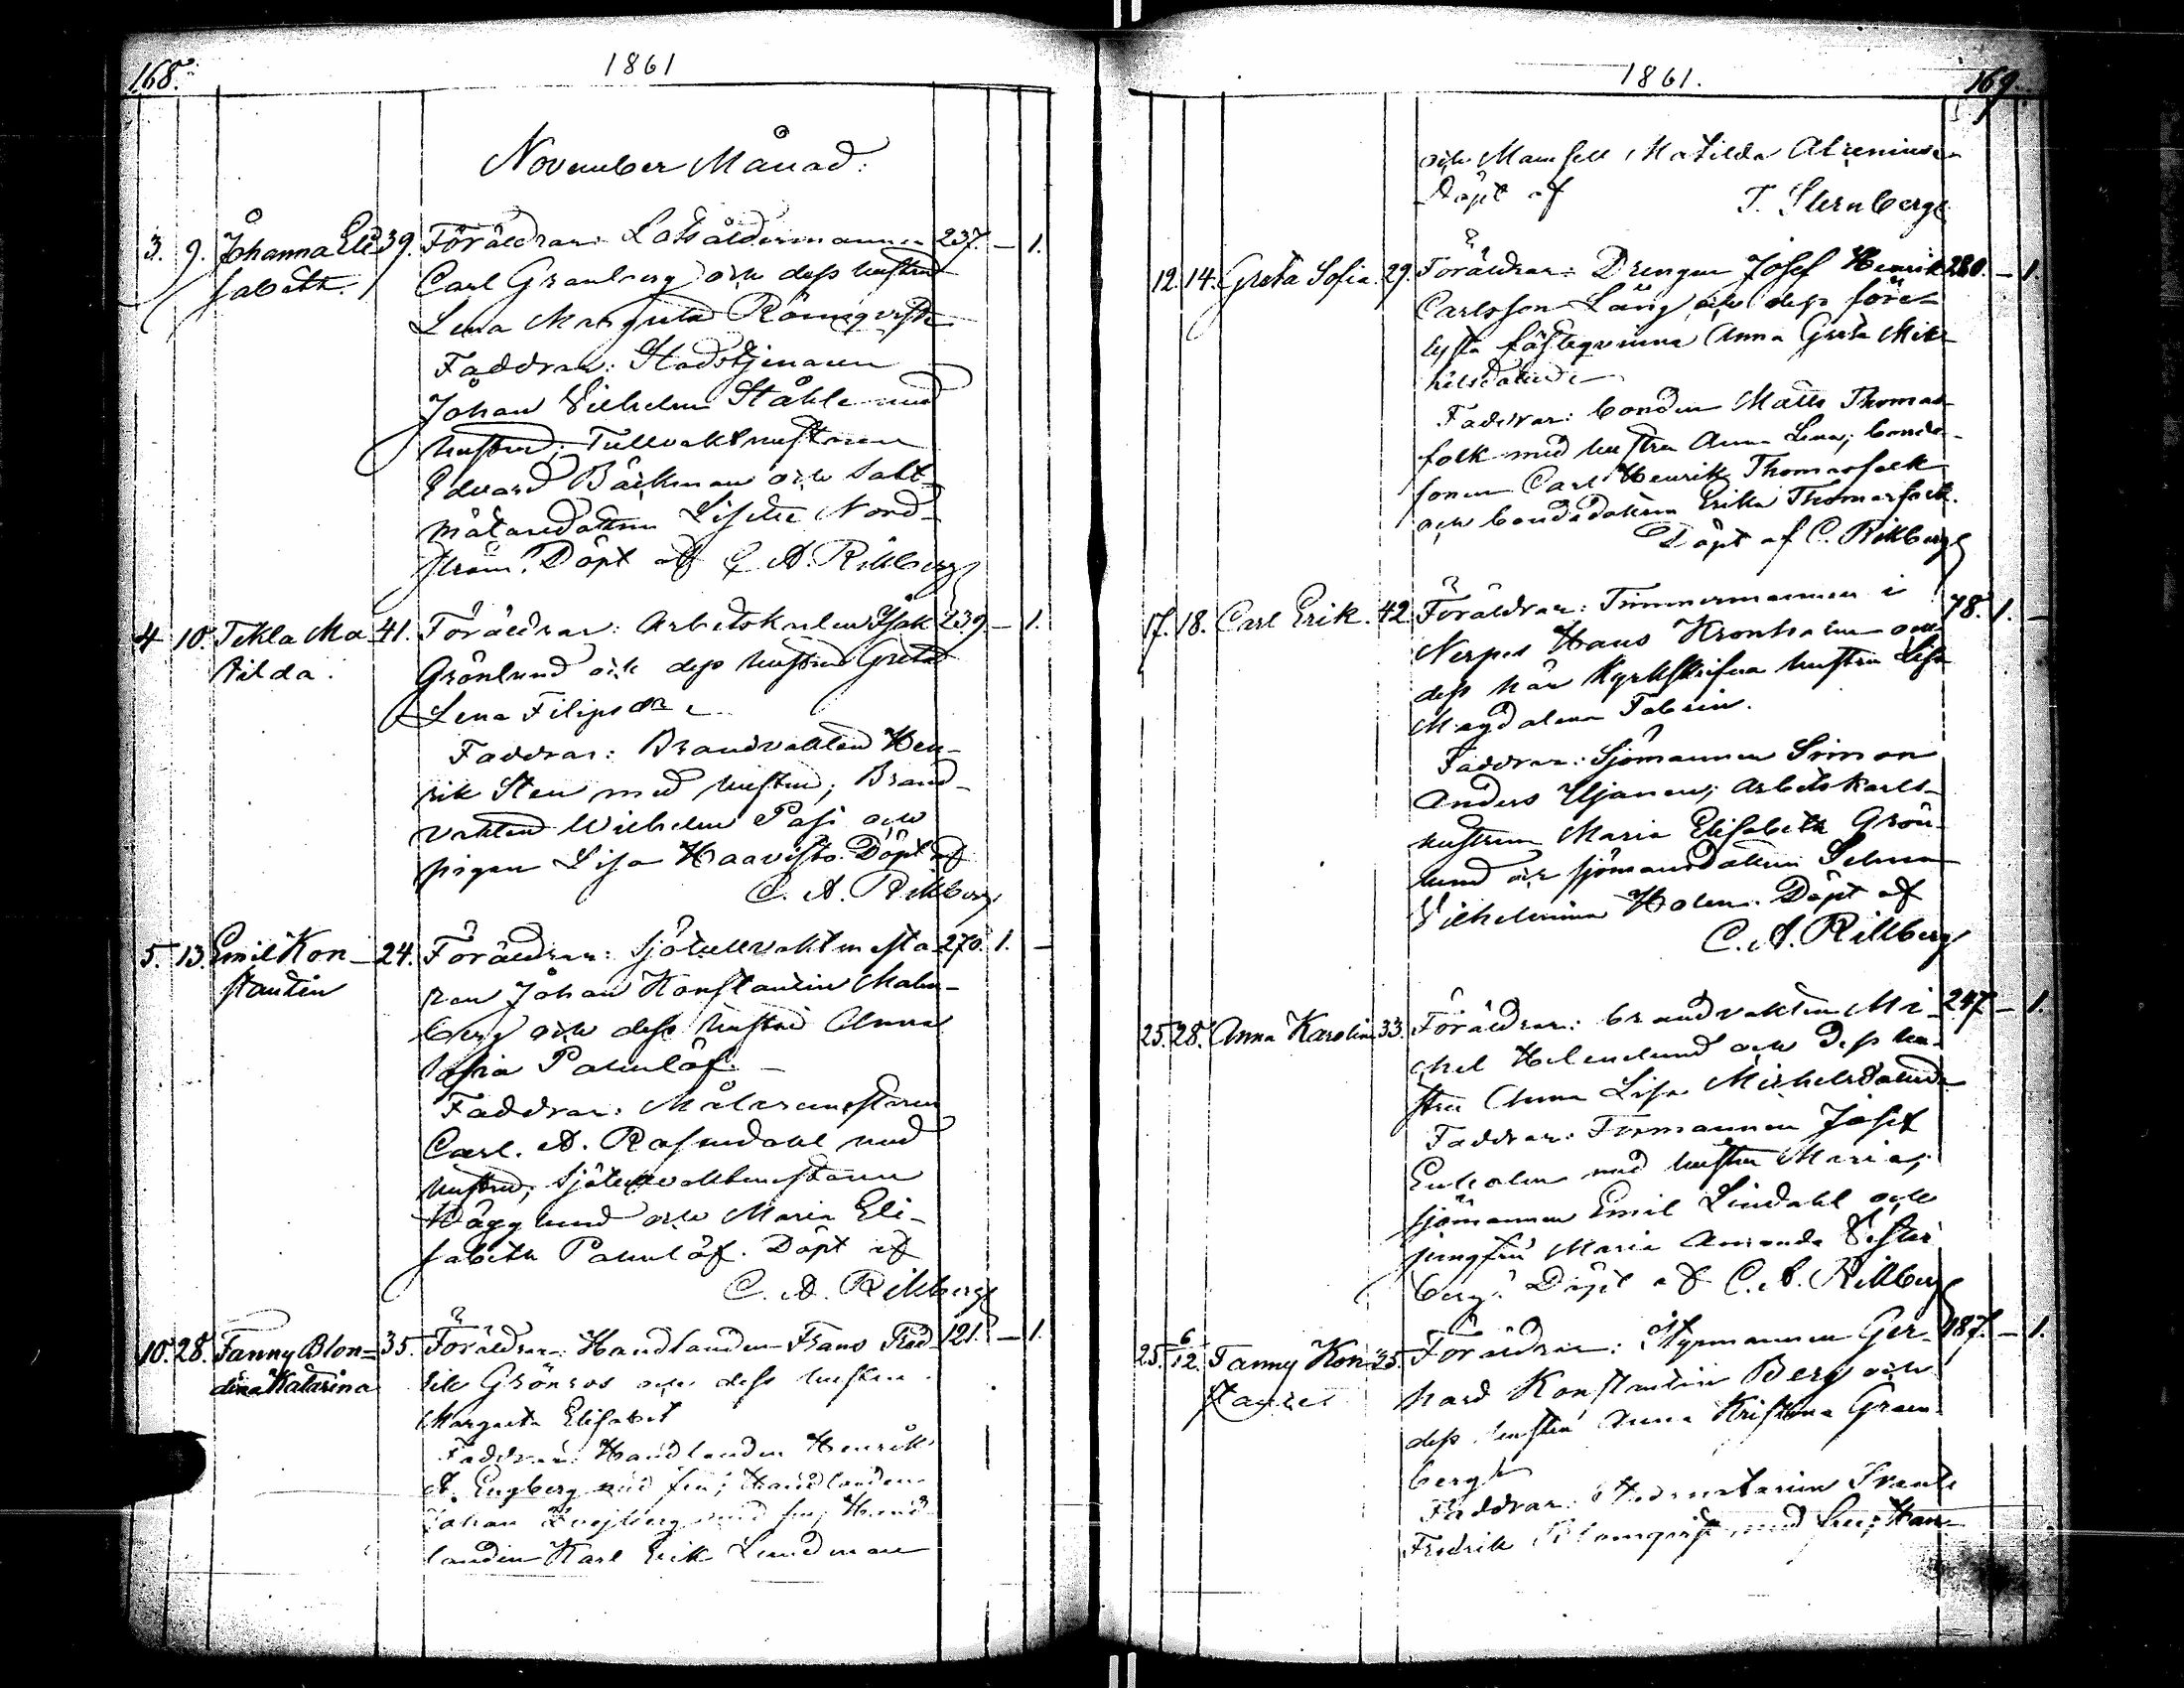 168.
1861
November Månad:
3. 9. Johanna Eli- 39. Föräldrar: Lotsåldermannen 237. — 1.
sabeth. Carl Granberg och dess hustru
Lena Margreta Rönnqvist
Faddrar: Stadstjenaren
Johan Vilhelm Ståhle med
hustru; Tullvaktmästaren
Edvard Bäckman och Salt-
mätaredottren Lisette Nord-
ström. Döpt af C. A. Rikberg
4 10. Tekla Ma- 41. Föräldrar: Arbetskarlen Isak 239 — 1.
tilda. Grönlund och dess hustru Greta
Lena Filipsdr
Faddrar: Brandvakten Hen-
rik Sten med hustru; Brand-
vakten Wilhelm Pasi och
pigan Lisa Haavisto. Döpt af
C. A. Rikberg
5. 13. Emil Kon- 24. Föräldrar: Sjötullvaktmästa- 270. 1. —
stantin ren Johan Konstantin Malm-
berg och dess hustru Anna
Sofia Palmlöf.
Faddrar: Målaremästaren
Carl. A. Rosendahl med
hustru; Sjötullvaktmästaren
Hägglund och Maria Eli-
sabeth Palmlöf. Döpt af
C. A. Rikberg
10. 28. Fanny Blon- 35. Föräldrar: Handlanden Frans Fred- 121. — 1.
dina Katarina rik Grönros och dess hustru
Margareta Elisabet
Faddrar: Handlanden Henrik
A. Engberg med fru; Handlanden
Johan med fru; Hand-
landen Karl Erik Lundman
1861.
169.
och Mamsell Matilda Alcenius
Döpt af T. Sternberg
12. 14. Greta Sofia. 29. Föräldrar: Drengen Josef Henrik 280. — 1.
Carlsson Lång och dess före-
lysta fästeqvinna Anna Greta Mik-
helsdotter
Faddrar: bonden Matts Thomas-
folk med hustru Anna Lena; bonde-
sonen Carl Henrik Thomasfolk
och bondedottren Erika Thomasfolk.
Döpt af C. Rikberg
17. 18. Carl Erik. 42 Föräldrar: Timmermannen i 78. 1. —
Nerpes Hans Kronholm och
dess här kyrkskrifna hustru Lisa
Magdalena Fabrin.
Faddrar: Sjömannen Simon
Anders Iljanen; Arbetskarls-
hustrun Maria Elisabeth Grön-
lund och sjömansdottren Selma
Vilhelmina Holm. Döpt af
C. A. Rikberg
25. 28. Anna Karolina 33. Föräldrar: brandvakten Mi- 247 — 1.
chel Helenelund och dess hu-
stru Anna Lisa Michelsdotter
Faddrar: Formannen Josef
Enholm med hustru Maria;
sjömannen Emil Lindahl och
jungfru Maria Amanda Vester-
berg. Döpt af C. A. Rikberg
25. 6/12. Fanny Kon- 35. Föräldrar: Styrmannen Ger- 187. — 1.
stance hard Konstantin Berg och
dess hustru Anna Kristina Gran-
berg
Faddrar: Svante
Fredrik Blomqvist med fru; Han-